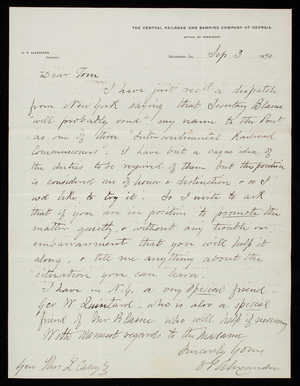 THE CENTRAL RAILROAD AND BANKING COMPANY OF GEORGIA.
OFFICE OF PRESIDENT
E. P. ALEXANDER,
President
Savannah, Ga., Sep. 3 1890
Dear Tom
I have just rec'd a dispatch
from New York saying that Secretary Blaine
will probably send my name to the Prest
as one of three "Intercontinental Railroad
Commissioners". I have but a vague idea of
the duties to be required of them but the position
is considered one of honor & distinction & so I
wd like to try it. So I write to ask
that if you are in position to promote the
matter quietly, & without any trouble or
embarrassment, that you will help it
along, & tell me anything about the
situation you can learn.
I have in N.Y. a very special friend
Geo W Quintard, who is also a special
friend of Mr Blaine who will help if necessary
With warmest regards to the Madame
Sincerely Yours
E P Alexander
Gen Thos L Casey